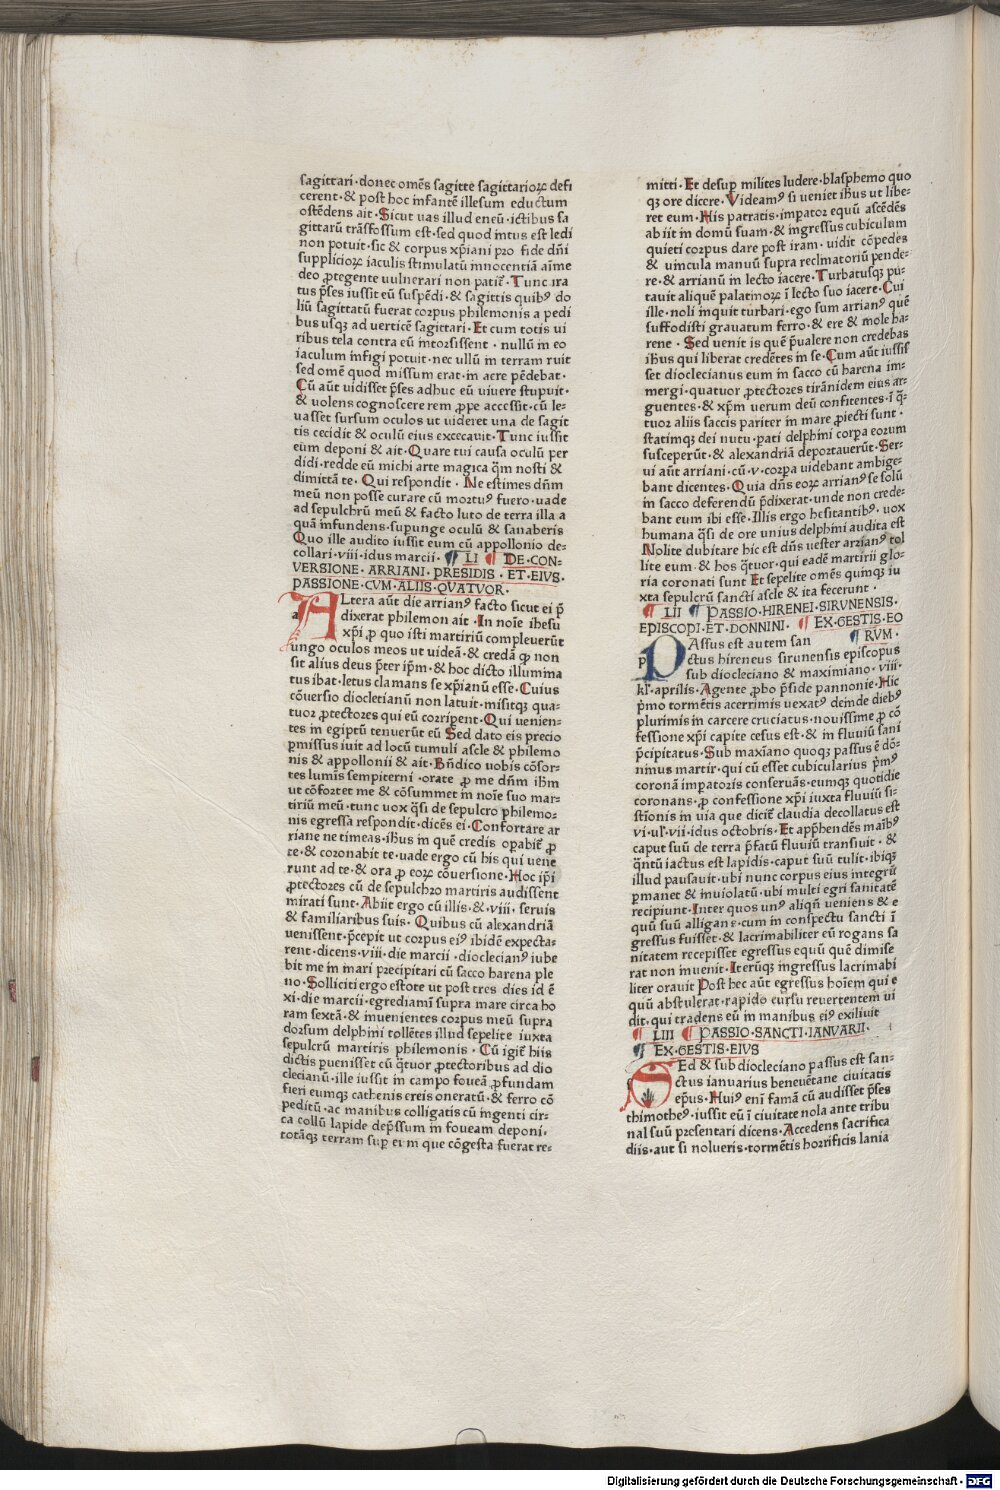 sagittari·donec omēs sagitte sagittarioꝝ defi
cerent·& post hoc infantē illesum eductum
ostēdens ait·Sicut uas illud eneū·ictibus sa
gittarū trāsfossum est·sed quod intus est ledi
non potuit·sic & corpus xp̄iani pro fide dn̄i
supplicioꝝ iaculis stimulatū innocentiā aīme
deo ꝓtegente uulnerari non patit᷑·Tunc ira
tus p̄ses iussit eū suspēdi·& sagittis quibꝰ do
liū sagittatū fuerat corpus philemonis a pedi
bus usqꝫ ad uerticē sagittari·Et cum totis ui
ribus tela contra eū intorsissent·nullū in eo
iaculum infigi potuit·nec ullū in terram ruit
sed omē quod missum erat·in aere pēdebat·
Cū aūt uidisset p̄ses adhuc eū uiuere stupuit·
& uolens cognoscere rem ꝓpe accessit·cū le-
uasset sursum oculos ut uideret una de sagit
tis cecidit & oculū eius excecauit·Tunc iussit
eum deponi & ait·Quare tui causa oculū per
didi·redde eū michi arte magica q̄m nosti &
dimittā te·Qui respondit·Ne estimes dn̄m
meū non posse curare cū mortuꝰ fuero·uade
ad sepulchrū meū & facto luto de terra illa a
quā infundens·supunge oculū & sanaberis
Quo ille audito iussit eum cū appollonio de-
collari·viii·idus marcii·¶ LI ¶ DE·CON-
VERSIONE·ARRIANI·PRESIDIS·ET·EIVS·
PASSIONE·CVM·ALIIS·QVATVOR·
ALtera aūt die arrianꝰ facto sicut ei p̄
dixerat philemon ait·In noīe ihesu
xp̄i ꝓ quo isti martiriū compleuerūt
ungo oculos meos ut uideā·& credā ꝙ non
sit alius deus p̄ter ip̄m·& hoc dicto illumina
tus ibat·letus clamans se xp̄ianū esse·Cuius
cōuersio diocletianū non latuit·misitqꝫ qua-
tuor ꝓtectores qui eū corriperent·Qui uenien-
tes in egiptū tenuerūt eū Sed dato eis precio
ꝑmissus iuit ad locū tumuli ascle & philemo
nis & appollonii & ait·Bn̄dico uobis cōsor-
tes lumīs sempiterni·orate ꝓ me dn̄m ihm̄
ut cōfortet me & cōsummet in noīe suo mar-
tiriū meū·tunc uox q̄si de sepulcro philemo-
nis egressa respondit·dicēs ei·Confortare ar
riane ne timeas·ihūs in quē credis oꝑabit᷑ ꝓ
te·& coronabit te·uade ergo cū his qui uene
runt ad te·& ora ꝓ eoꝝ cōuersione·Hoc ip̄i
ꝓtectores cū de sepulchro martiris audissent
mirati sunt·Abiit ergo cū illis·&·viii·seruis
& familiaribus suis·Quibus cū alexandriā
uenissent·p̄cepit ut corpus eiꝰ ibidē expecta-
rent·dicens·viii·die marcii·dioclecianꝰ iube
bit me in mari precipitari cū sacco harena ple
no·Solliciti ergo estote ut post tres dies id ē
xi·die marcii·egrediamī supra mare circa ho
ram sextā·& inuenientes corpus meū supra
dorsum delphini tollētes illud sepelite iuxta
sepulcrū martiris philemonis·Cū igit᷑ hiis
dictis puenisset cū q̄tuor ꝓtectoribus ad dio
clecianū·ille iussit in campo foueā ꝓfundam
fieri eumqꝫ cathenis ereis oneratū·& ferro cō
peditū·ac manibus colligatis cū ingenti cir-
ca collū lapide dep̄ssum in foueam deponi·
totāqꝫ terram suꝑ eum que cōgesta fuerat re-
mitti·Et desuꝑ milites ludere·blasphemo quo
qꝫ ore dicere·Videamꝰ si ueniet ihūs ut libe-
ret eum·Hiis patratis·imperator equū ascēdēs
abiit in domū suam·& ingressus cubiculum
quieti corpus dare post iram·uidit cōpedes
& uincula manuū supra reclinatoriū pende-
re·& arrianū in lecto iacere·Turbatusqꝫ pu-
tauit aliquē palatinoꝝ ī lecto suo iacere·Cui
ille·noli inquit turbari·ego sum arrianꝰ quē
suffodisti grauatum ferro·& ere & mole ha-
rene·Sed uenit is quē p̄ualere non credebas
ihūs qui liberat credētes in se·Cum aūt iussis
set dioclecianus eum in sacco cū harena im-
mergi·quatuor ꝓtectores tirānidem eius ar-
guentes·& xp̄m uerum deū confitentes·ī q̄-
tuor aliis saccis pariter in mare ꝓiecti sunt·
statimqꝫ dei nutu·pati delphini corpa eorum
susceperūt·& alexandriā deportauerūt·Ser-
ui aūt arriani·cū·v·corpa uidebant ambige-
bant dicentes·Quia dn̄s eoꝝ arrianꝰ se solū
in sacco deferendū p̄dixerat·unde non crede-
bant eum ibi esse·Illis ergo hesitantibꝰ·uox
humana q̄si de ore unius delphini audita est
Nolite dubitare hic est dn̄s uester arrianꝰ tol
lite eum·& hos q̄tuor·qui eadē martirii glo-
ria coronati sunt Et sepelite omēs quinqꝫ iu
xta sepulcrū sancti ascle & ita fecerunt·
¶ LII ¶ PASSIO·HIRENEI·SIRVNENSIS·
EPISCOPI·ET·DONNINI·¶ EX·GESTIS·EO
¶ RVM·
PAssus est autem san
ctus hireneus sirunensis episcopus
sub diocleciano & maximiano·viii·
kl̄·aprilis·Agente ꝓbo p̄side pannonie·Hic
p̄mo tormētis acerrimis uexatꝰ deinde diebꝰ
plurimis in carcere cruciatus·nouissime ꝓ cō
fessione xp̄i capite cesus est·& in fluuiū sani
p̄cipitatus·Sub maxīano quoqꝫ passus ē dō-
ninus martir·qui cū esset cubicularius p̄mꝰ
coronā imparatoris conseruās·eumqꝫ quotidie
coronans·ꝓ confessione xp̄i iuxta fluuiū si-
stīonis in uia que dicit᷑ claudia decollatus est
vi·ul᷑·vii·idus octobris·Et app̄hendēs maībꝰ
caput suū de terra p̄fatū fluuiū transiuit·&
q̄ntū iactus est lapidis·caput suū tulit·ibiqꝫ
illud pausauit·ubi nunc corpus eius integrū
ꝑmanet & inuiolatū·ubi multi egri sanitatē
recipiunt·Inter quos unꝰ aliqn̄ ueniens & e
quū suū alligans·cum in conspectu sancti ī
gressus fuisset·& lacrimabiliter eū rogans sa
nitatem recepisset egressus equū quē dimise
rat non inuenit·Iterūqꝫ ingressus lacrimabi
liter orauit Post hec aūt egressus hoīem qui e
quū abstulerat·rapido cursu reuertentem ui
dit·qui tradens eū in manibus eiꝰ exiliuit
¶ LIII ¶ PASSIO·SANCTI·IANVARII·
¶ EX·GESTIS·EIVS
SEd & sub diocleciano passus est san-
ctus ianuarius beneuētane ciuitatis
ep̄us·Huiꝰ enī famā cū audisset p̄ses
thimotheꝰ·iussit eū ī ciuitate nola ante tribu
nal suū presentari dicens·Accedens sacrifica
diis·aut si nolueris·tormētis horrificis lania
Digitalisierung gefördert durch die Deutsche Forschungsgemeinschaft · DFG